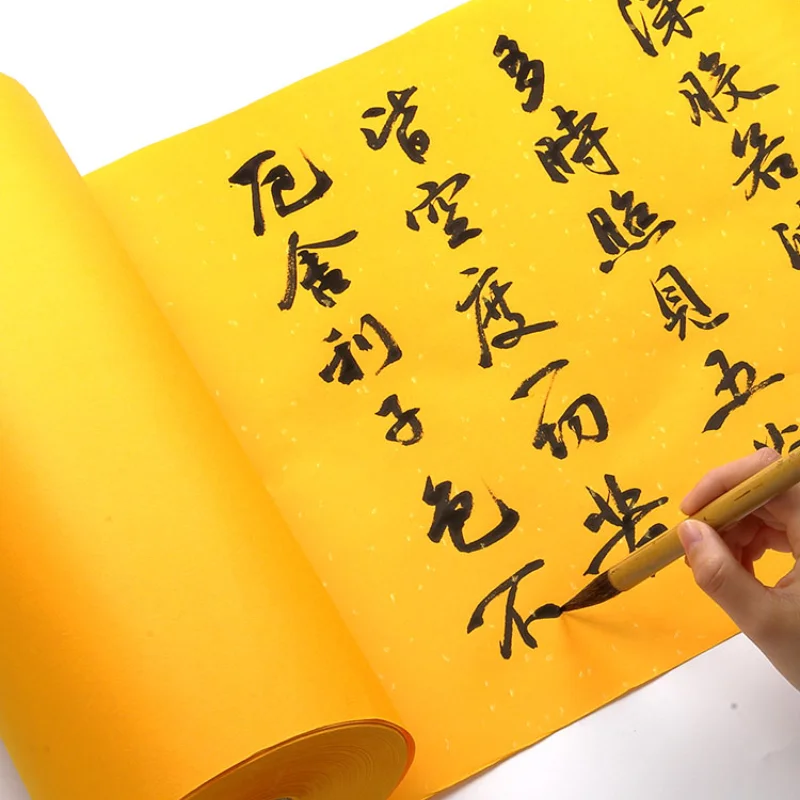 深般若
多時照見五
皆空度一切苦
厄舍利子色不